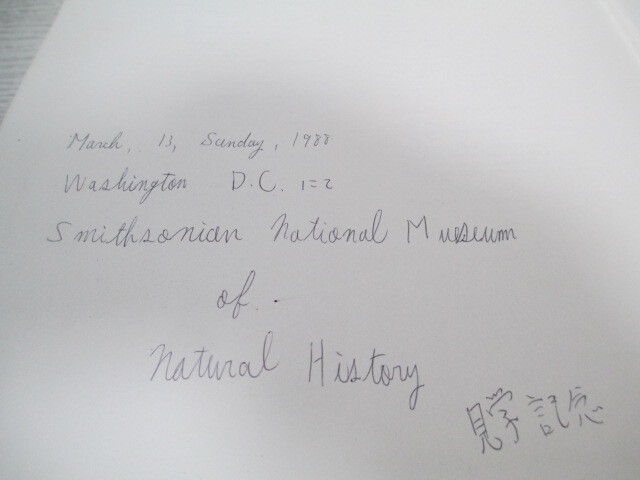 March, 13, Sunday, 1988
Washington D.C. にて
Smithsonian National Museum
of
Natural History
見学記念